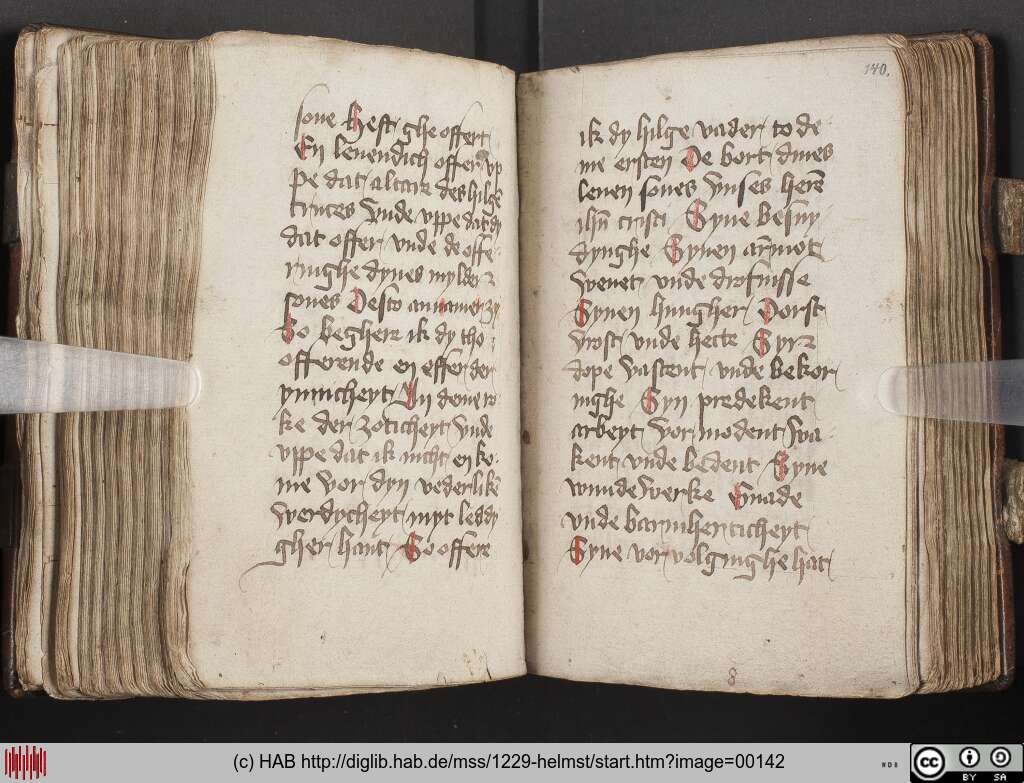 sone Hest ghe offert
En leuendich offer vp
pe dat altare des hilgē
cruces Vnde vppe dat dy
dat offer vnde de offe
ringhe dynes mylden
sones
So beghere ik dy tho
offerende en offer der
ynnicheyt In deme ro
ke der zoticheyt Vnde
vppe dat ik nicht en ko
me vor dyn vederlikē
werdycheyt myt leddy
gher hant So offere
140.
ik dy hilge vader to de
me ersten De bort dines
leuen sones vnses herē
ihū cristi Syne besny
dynghe Synen armot
vnde drofnisse
Synen hungher Dorst
vrost vnde hette Syn
dope vastent vnde bekor
inghe Syn predekent
arbeyt vor modent wa
kent vnde bedent Syne
wunderwerke Gnade
vnde barmherticheyt
Syne vor volginghe hat
8
(c) HAB http://diglib.hab.de/mss/1229-helmst/start.htm?image=00142
WDB
cc BY SA